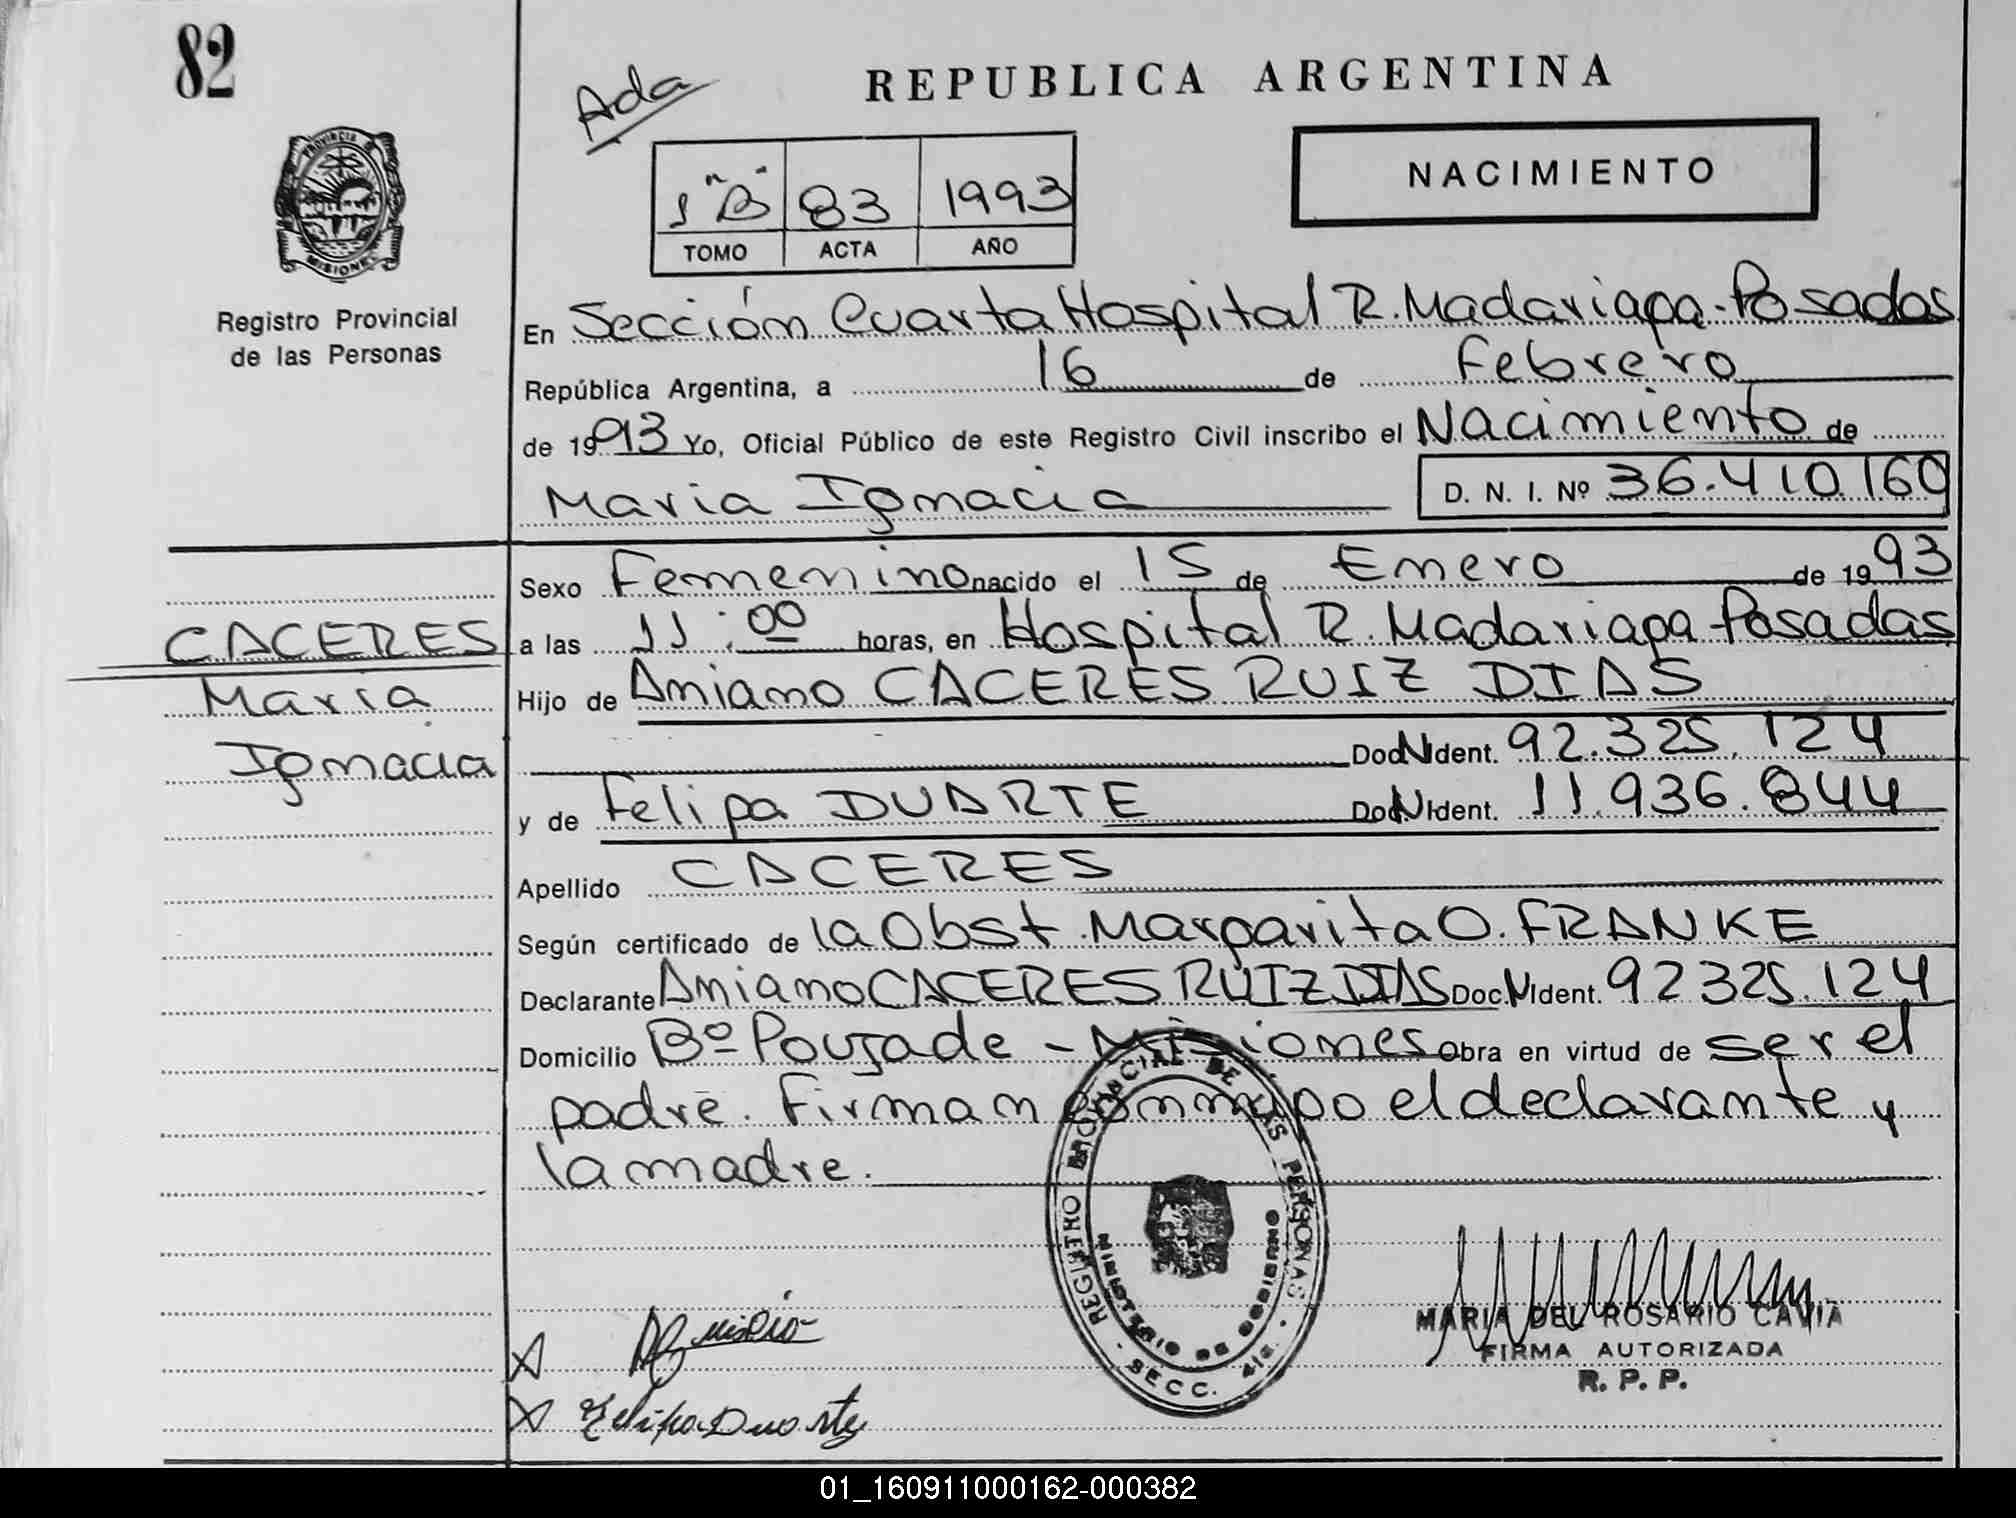 82
Ada
REPUBLICA ARGENTINA
NACIMIENTO
1 "B" 83 1993
TOMO ACTA AÑO
PROVINCIA DE
MISIONES
Registro Provincial
de las Personas
En Sección Cuarta Hospital R. Madariaga-Posadas
República Argentina, a 16 de Febrero
de 1993 Yo, Oficial Público de este Registro Civil inscribo el Nacimiento de
Maria Ignacia D. N. I. Nº 36.410.160
Sexo Femenino nacido el 15 de Enero de 1993
CACERES
a las 11:00 horas, en Hospital R. Madariaga Posadas
Maria
Hijo de Aniano CACERES RUIZ DIAS
Ignacia
Doc. N Ident. 92.325.124
y de Felipa DUARTE Doc. N Ident. 11.936.844
Apellido CACERES
Según certificado de la Obst. Margarita O. FRANKE
Declarante Aniano CACERES RUIZ DIAS Doc. N Ident. 92325.124
Domicilio Bº Poujade - Misiones Obra en virtud de ser el
padre. Firman conmigo el declarante y
la madre.
REGISTRO PROVINCIAL DE LAS PERSONAS
MINISTERIO DE GOBIERNO
SECC. 4ta.
MARIA DEL ROSARIO CAVIA
FIRMA AUTORIZADA
R. P. P.
X
X Felipa Duarte
01_160911000162-000382